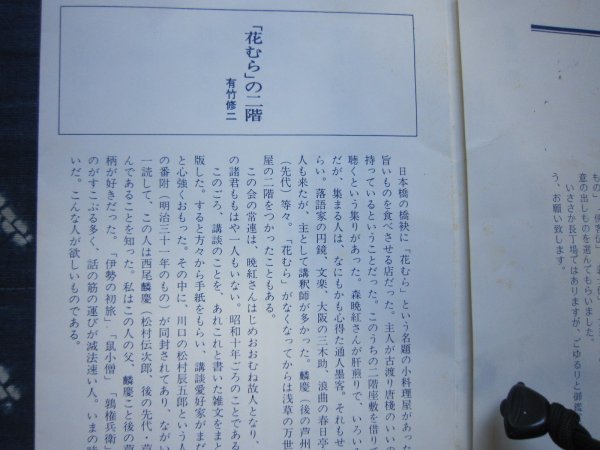 「花むら」の二階
有竹修二
日本橋の橋袂に「花むら」という名題の小料理屋があった
旨いものを食べさせる店だった。主人が古渡り唐棧のいいの
持っているということだった。このうちの二階座敷を借りて
聴くという集りがあった。森暁紅さんが肝煎りで、いろい
だが、集まる人は、なにもかも心得た通人墨客。それもせ
らい。落語家の円鏡、文楽、大阪の三木助、浪曲の春日亭
人も来たが、主として講釈師が多かった。麟慶（後の芦州
（先代）等々。「花むら」がなくなってからは浅草の万世
屋の二階をつかったこともある。
この会の常連は、暁紅さんはじめおおむね故人となり、
の諸君もももはや一人もいない。昭和十年ごろのことである
このごろ、講談のことを、あれこれと書いた雑文をまと
版した。すると方々から手紙をもらい、講談愛好家がまだ
と心強くおもった。その中に、川口の松村辰五郎という人
の番附（明治三十一年のもの）が同封されてあり、ながい
一読して、この人は西尾麟慶（松村伝次郎、後の先代・芦
んであることを知った。私はこの人の父、麟慶こと後の芦
柄が好きだった。「伊勢の初旅」「鼠小僧」「鶉権兵衛」
のがすこぶる多く、話の筋の運びが滅法速い人。いまの時
いだ。こんな人が欲しいものである。
意の出しものを選んでもらいました。
いささか長丁場ではありますが、ごゆるりと御鑑
う、お願い致します。